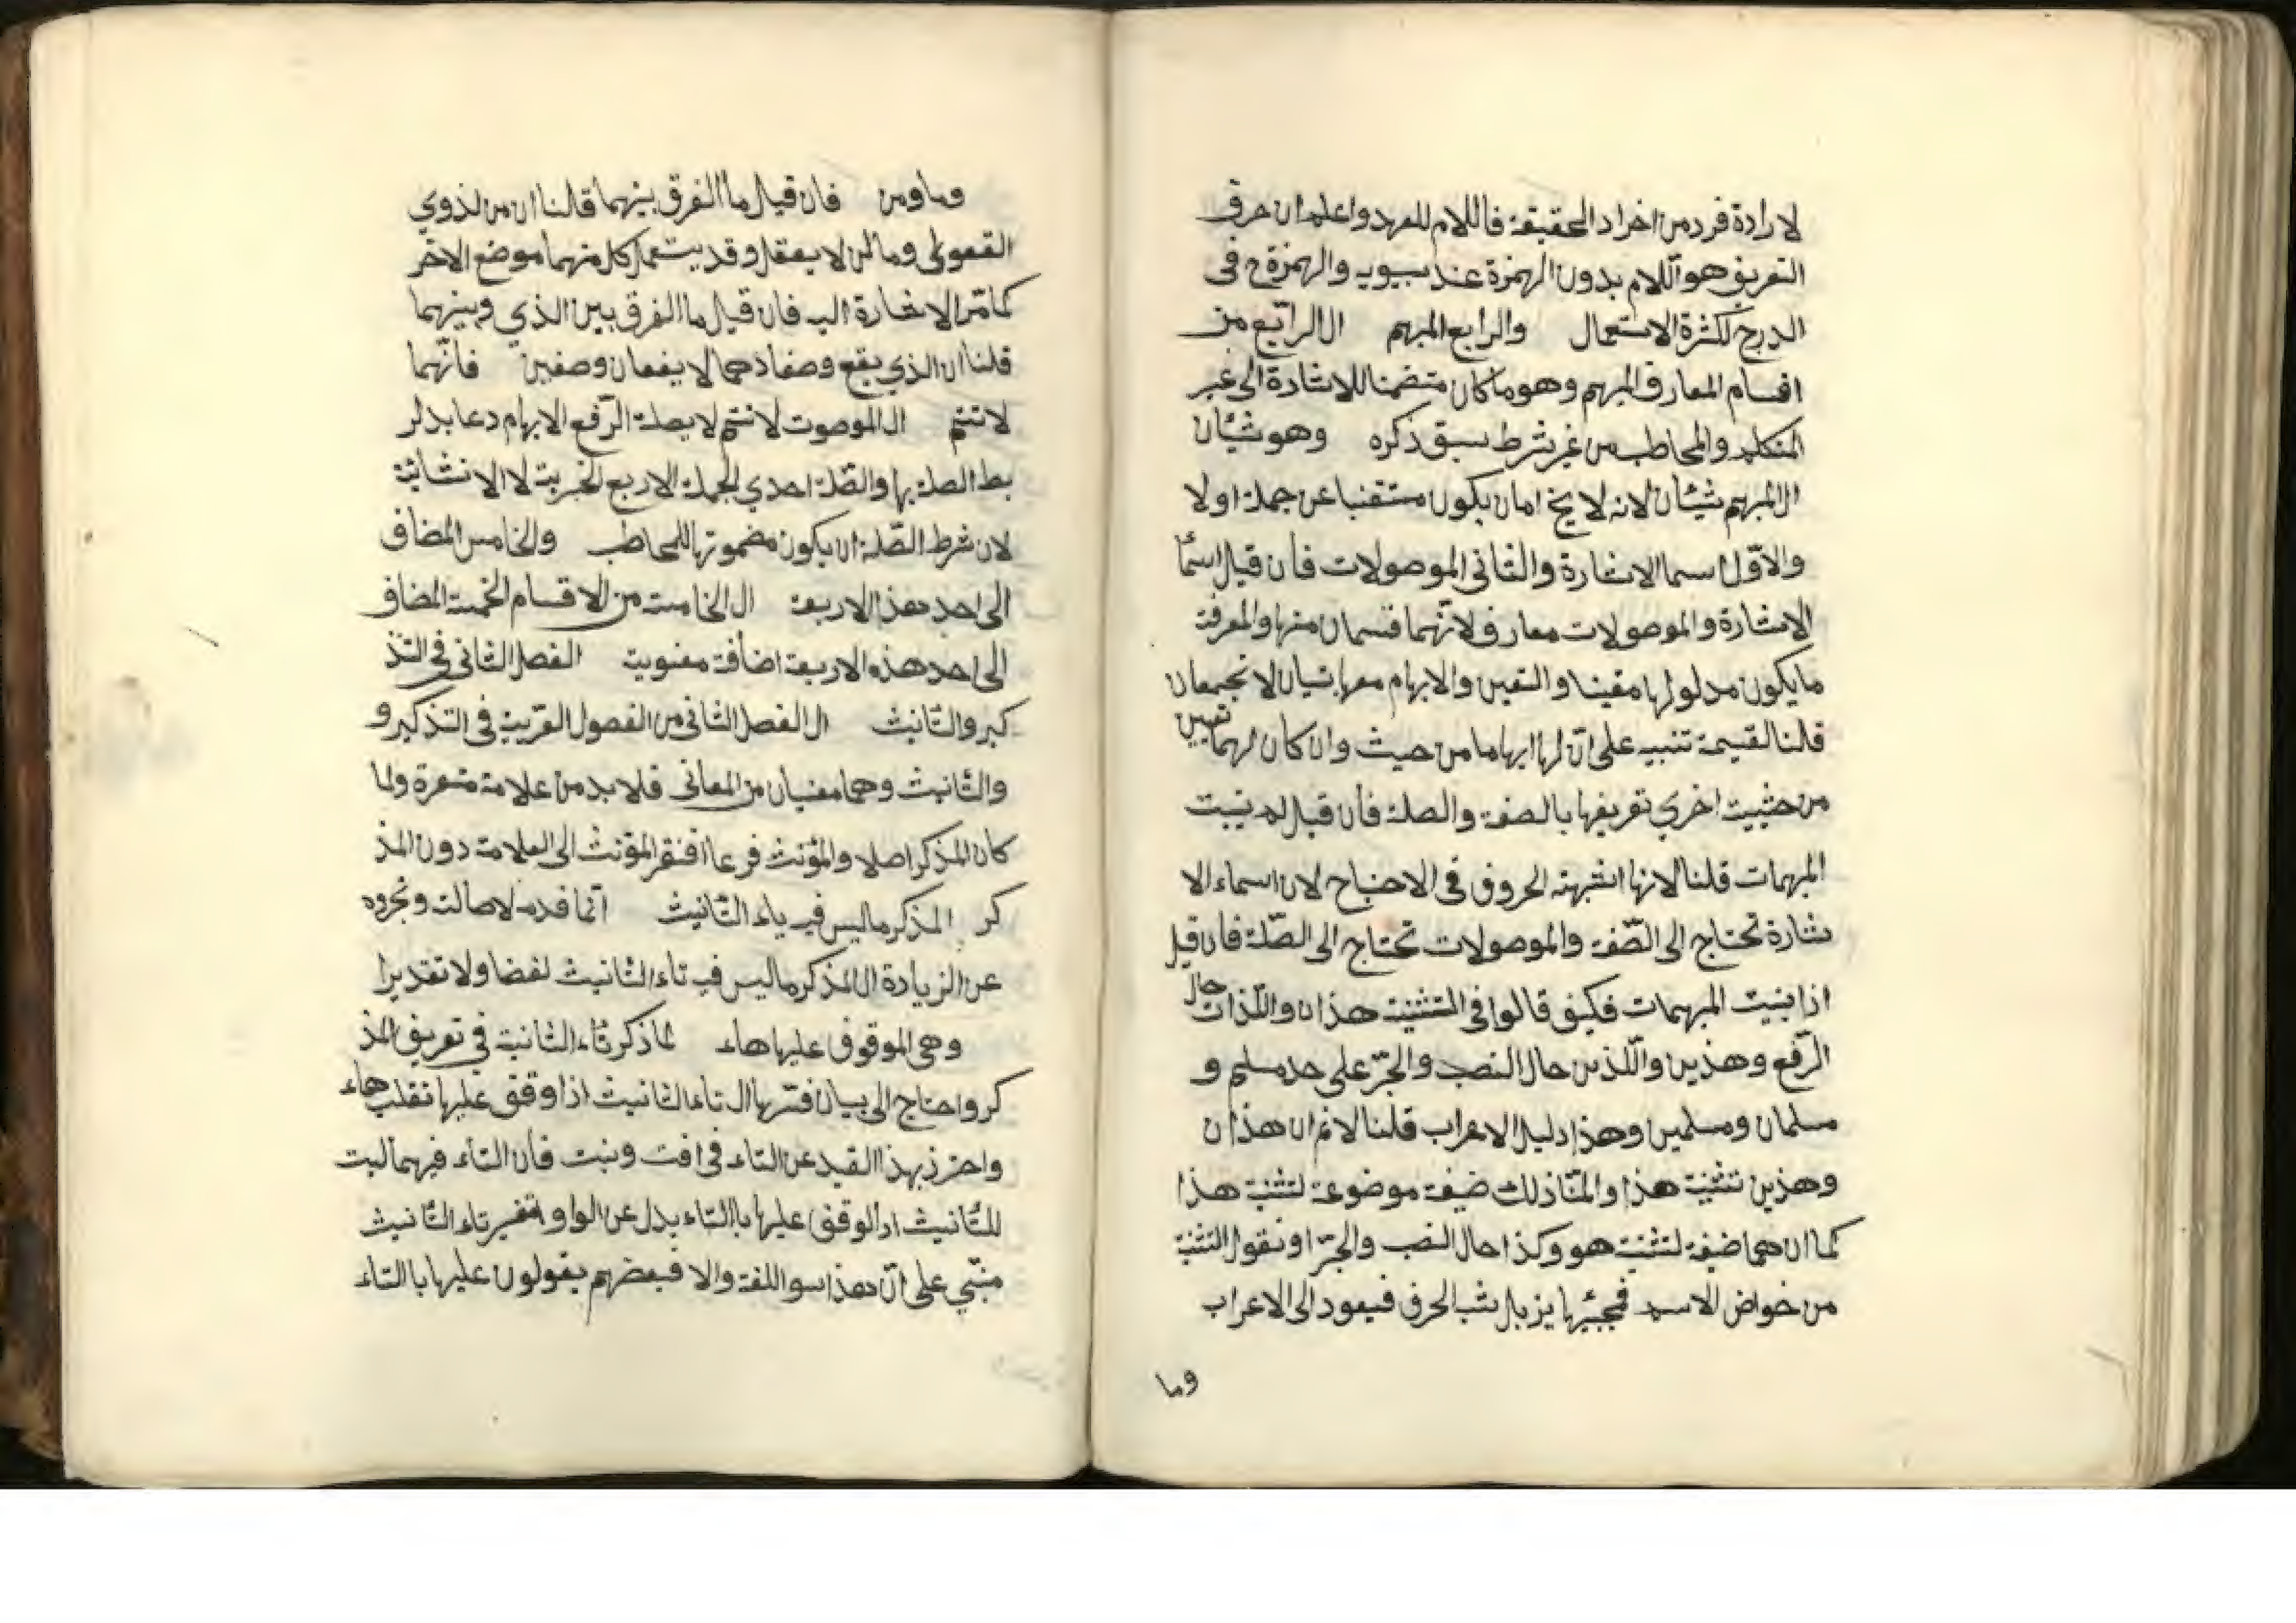 لارادة فرد من اخراد الحقيقة فاللام للعهد واعلم ان حرف
التعريف هو اللام بدون الهمزة عند سيبويه والهمزة ح فى
الدرج لكثرة الاستعمال والرابع المبهم ال الرابع من
اقسام المعارف المبهم وهو ما كان متضمنا للاشارة الى غير
المتكلم والمخاطب من غير شرط سبق ذكره وهو شيئان
ال المبهم شيئان لانه لا يخ امان يكون مستغنيا عن جملة اولا
والاوّل اسما الاشارة والثانى الموصولات فان قيل اسمآ
الاشارة والموصولات معارف لانّهما قسمان منها والمعرفة
ما يكون مدلولها معينا والتعين والابهام معها شيان لا تجتمعان
قلنا لقسيمة تنبيه على انّ لها ابهاما من حيث وان كان لهما تعيين
من حيثيت اخري تعريفها بالصفة والصلة فان قيل لم بنيت
المبهمات قلنا لانها اشبهته الحروف فى الاحتياج لان اسماء الا
شارة تحتاج الى الصّفة والموصولات تحتاج الى الصّلة فان قيل
اذا بنيت المبهمات فكيف قالوا فى التثنية هذان واللّذان حال
الرّفع وهذين واللّذين حال النصب والجرّ على حد مسلم و
مسلمان ومسلمين وهذا دليل الاعراب قلنا لا نم ان هذان
وهذين تثنية هذا وانمّا ذلك ضيغة موضوعة لتثنية هذا
كما ان هما ضيغة لتثنية هو وكذا حال النصب والجرّ او نقول التثنية
من خواض الاسم فمجيئها يزيل شبه الحرف فيعود الى الاعراب
وما
وما ومن فان قيل ما الفرق بينهما قلنا ان من لذوي
العقول وما لمن لا يعقل وقد يستعمل كل منهما موضع الاخر
كما مّر الاشارة اليه فان قيل ما الفرق بين الذي وبينهما
قلنا ان الذي يقع وصفا دهما لا يقعان وصفين فانّهما
لا تتم ال الموصوت لا نتم لا بصلة الرّفع الابهام دعا بدلر
بط الصلة بها والصّلة احدي الجملة الاربع الخبرية لا الانشائية
لان شرط الصّلة ان يكون مضمونها للمخاطب والخامس المضاف
الى احد هذ الاربعة ال الخامسة من الاقسام الخمسة المضاف
الى احد هذه الاربعة اضافة معنوية الفصل الثانى فى التذ
كير والتانيث ال الفصل الثانى من الفصول القريبة فى التذكير و
والتانيث وهما معنيان من المعانى فلا بد من علامة مشعرة ولما
كان المذكر اصلا والمؤنث فرعا افتقر المؤنث الى العلامة دون المذ
كر المذكر ما ليس فيه ياء التانيث انّما قدمه لاصالته وتجرده
عن الزيادة ال المذكر ما ليس فيه تاء التانيث لفضا ولا تقديرا
وهى الموقوف عليها هاء لما ذكر تاء التانية فى تعريف المذ
كر واحتاج الى بيان فسّرها ال تاء التانيث اذا وقف عليها تقلب هاء
واحترز بهذا القيد عن التاء فى اخت وبنت فان التاء فيهما ليت
للتانيث اد الوقف عليها با التاء بدل عن الواو تفسير تاء التانيث
مبنّي على انّ هذا سو اللغة والا فبعضهم يقولون عليها با التاء